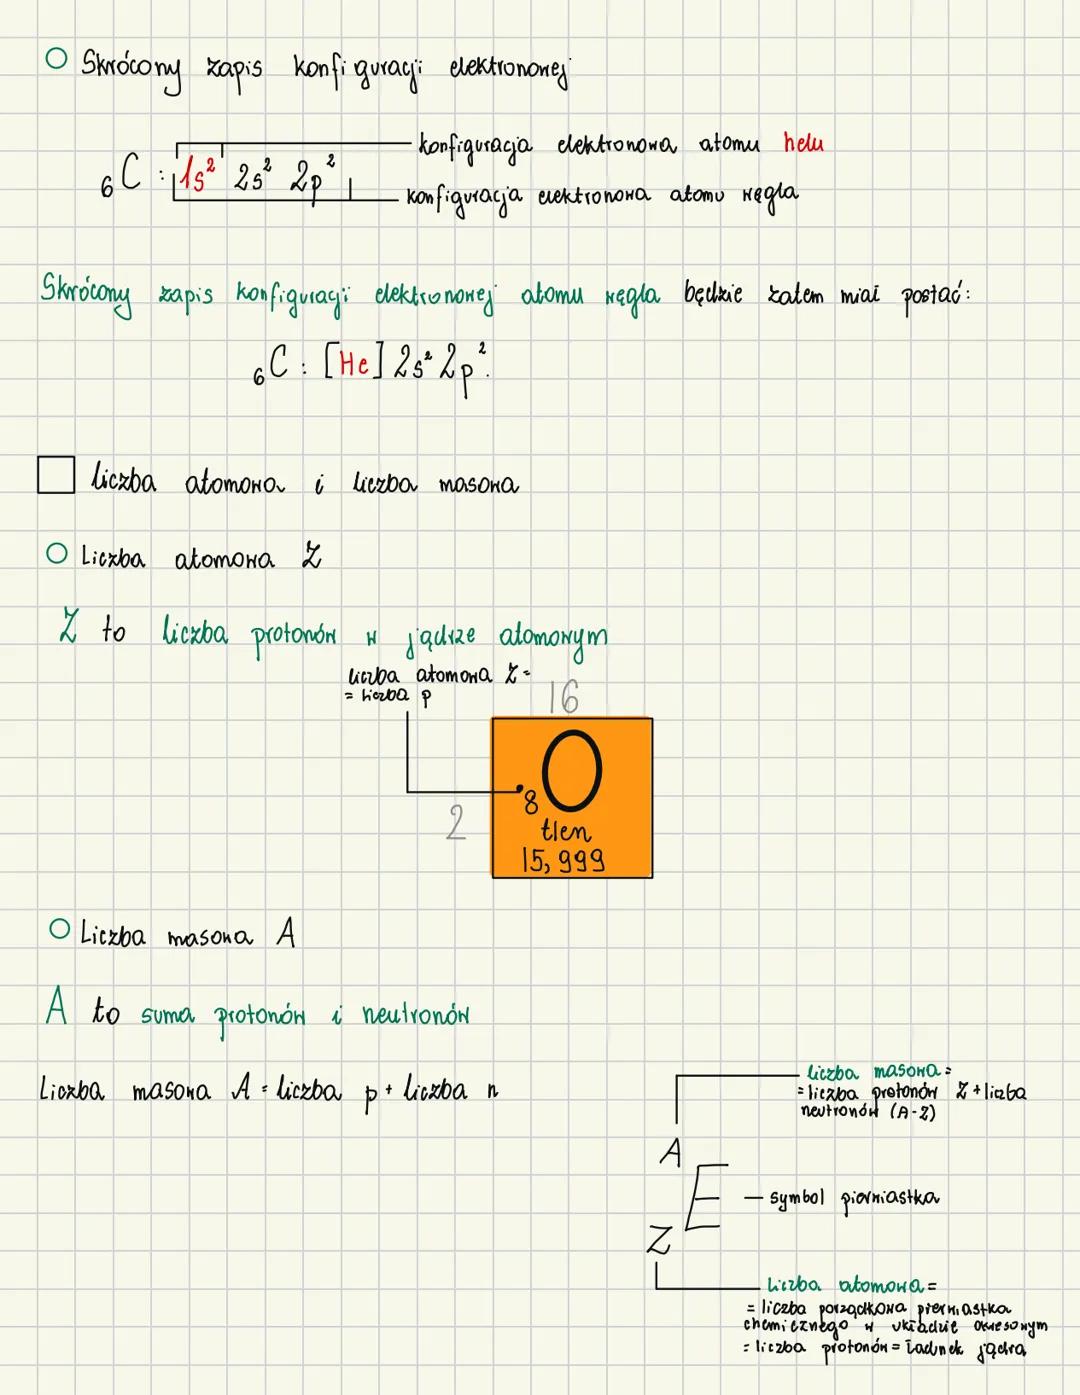 Skrócony zapis konfiguracji elektronowej
konfiguracja elektronowa atomu helu
₆C : 1s² 2s² 2p²
konfiguracja elektronowa atomu węgla
Skrócony zapis konfiguracji elektronowej atomu węgla będzie zatem miał postać:
₆C : [He] 2s² 2p².
liczba atomowa i liczba masowa
Liczba atomowa Z
Z to liczba protonów w jądrze atomowym
liczba atomowa Z =
= liczba p
16
O
8
2
tlen
15,999
Liczba masowa A
A to suma protonów i neutronów
Liczba masowa A = liczba p + liczba n
liczba masowa =
= liczba protonów Z + liczba
neutronów (A-Z)
A
E — symbol pierwiastka
Z
liczba atomowa =
= liczba porządkowa pierwiastka
chemicznego w układzie okresowym
= liczba protonów = ładunek jądra